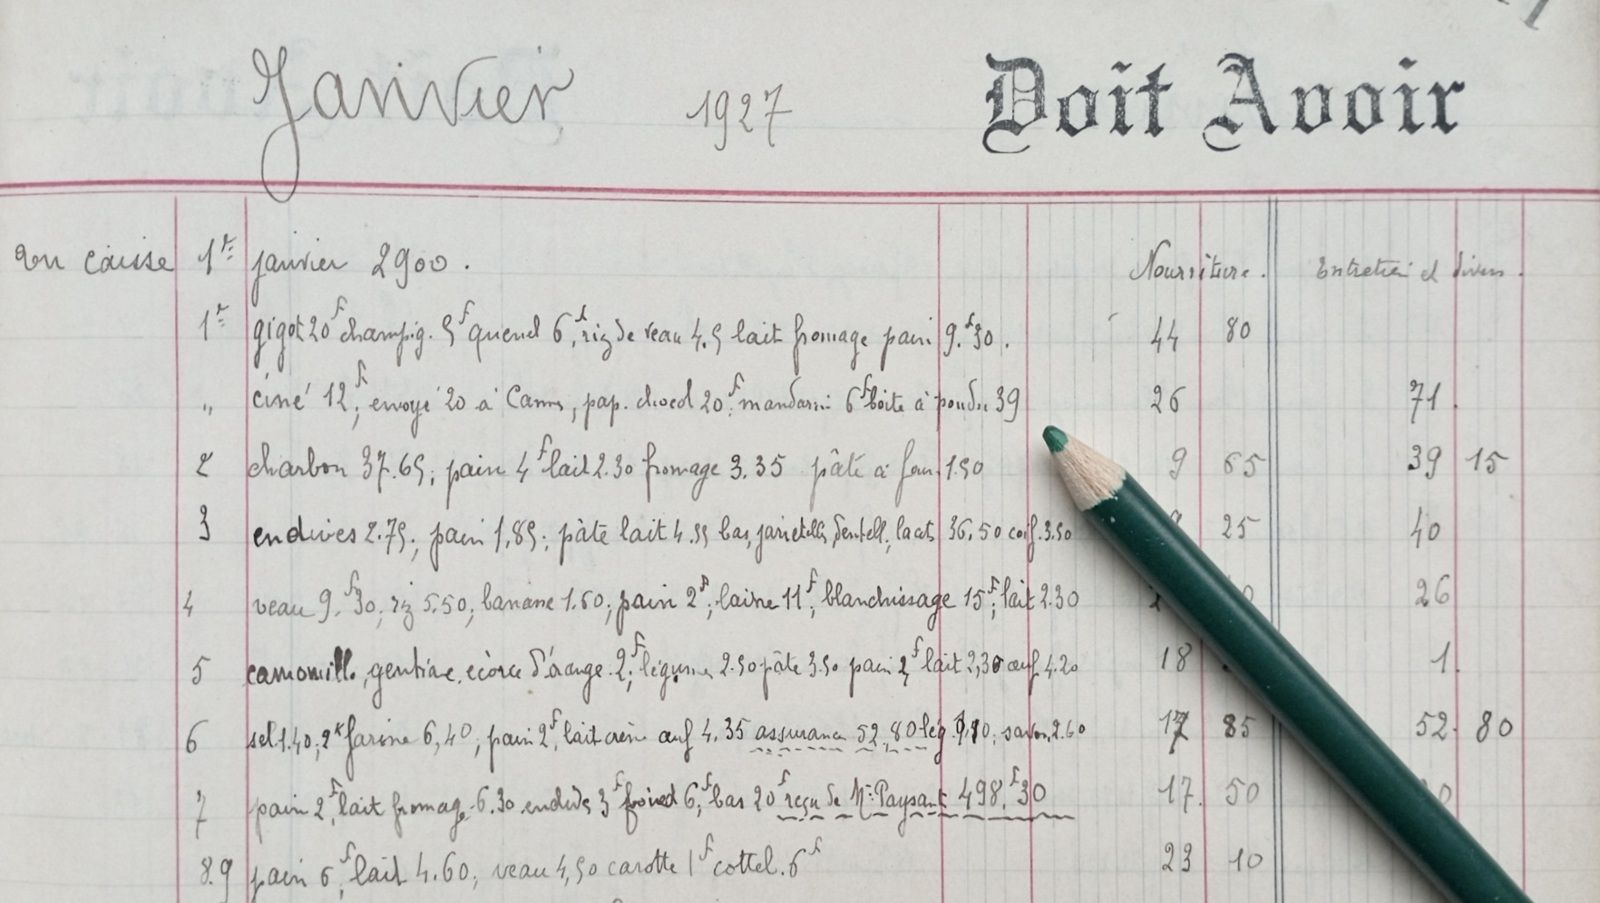 Janvier 1927 Doit Avoir
En caisse 1er janvier 2900. Nourriture. Entretien et divers.
1er gigot 20f champig. 5f quenel 6f, riz de veau 4.5 lait fromage pain 9.f30. 44 80
" ciné 12f, envoyé 20 à Cannes, pap. 20f, mandarin 6f boîte à poudre 39 26 71.
2 charbon 37.65; pain 4f lait 2.30 fromage 3.35 pâté à 1.50 9 65 39 15
3 endives 2.75; pain 1,85; pâte lait 4.55 bas, dentell, lacets 36,50 coif. 3.50 25 40
4 veau 9.f30, riz 5.50, banane 1.60; pain 2f; laine 11f; blanchissage 15f; lait 2.30 26
5 camomille, gentiane, écorce d'orange. 2f; légume 2.50 pâte 3.50 pain 2f lait 2,30 œuf 4.20 18 1.
6 sel 1.40, 2k farine 6,40, pain 2f, lait crème œuf 4.35 assurance 52,80 lég. savon 2.60 17 85 52. 80
7 pain 2f, lait fromag. 6.30 endives 3f 6f, bas 20f reçu de Mr Paysant 498,f30 17. 50
8.9 pain 6f, lait 4.60, veau 4,50 carotte 1f cottel. 6f 23 10